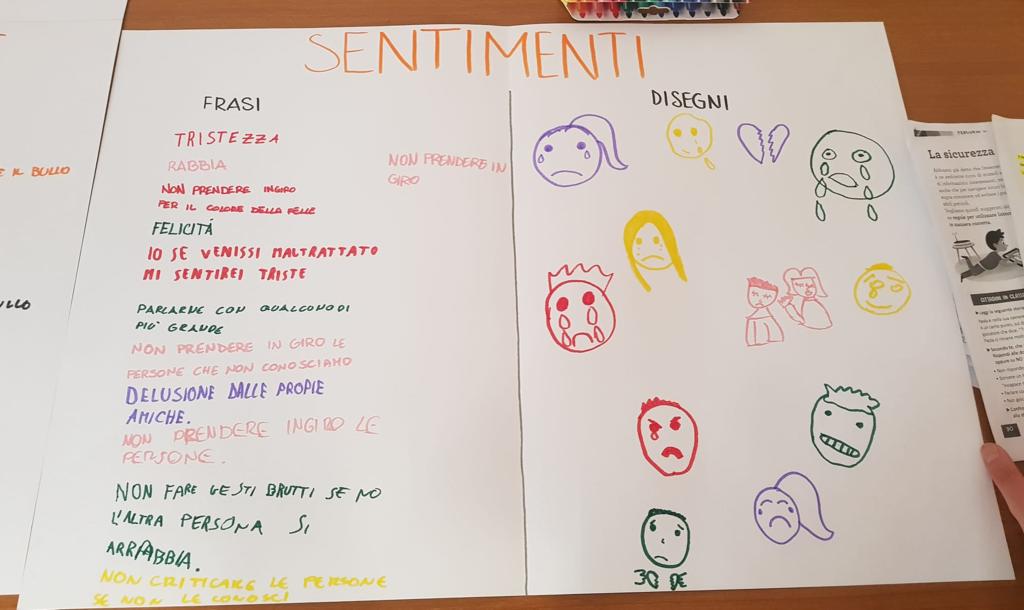 SENTIMENTI
FRASI
TRISTEZZA
RABBIA
NON PRENDERE IN
GIRO
NON PRENDERE INGIRO
PER IL COLORE DELLA PELLE
FELICITÁ
IO SE VENISSI MALTRATTATO
MI SENTIREI TRISTE
PARLARNE CON QUALCONO DI
PIU' GRANDE
NON PRENDERE IN GIRO LE
PERSONE CHE NON CONOSCIAMO
DELUSIONE DALLE PROPIE
AMICHE.
NON PRENDERE INGIRO LE
PERSONE.
NON FARE GESTI BRUTTI SE NO
L'ALTRA PERSONA SI
ARRABBIA.
NON CRITICARE LE PERSONE
SE NON LE CONOSCI
DISEGNI
30 DE
E IL BULLO
La sicurezza
CITTADINI IN CLASSE
90